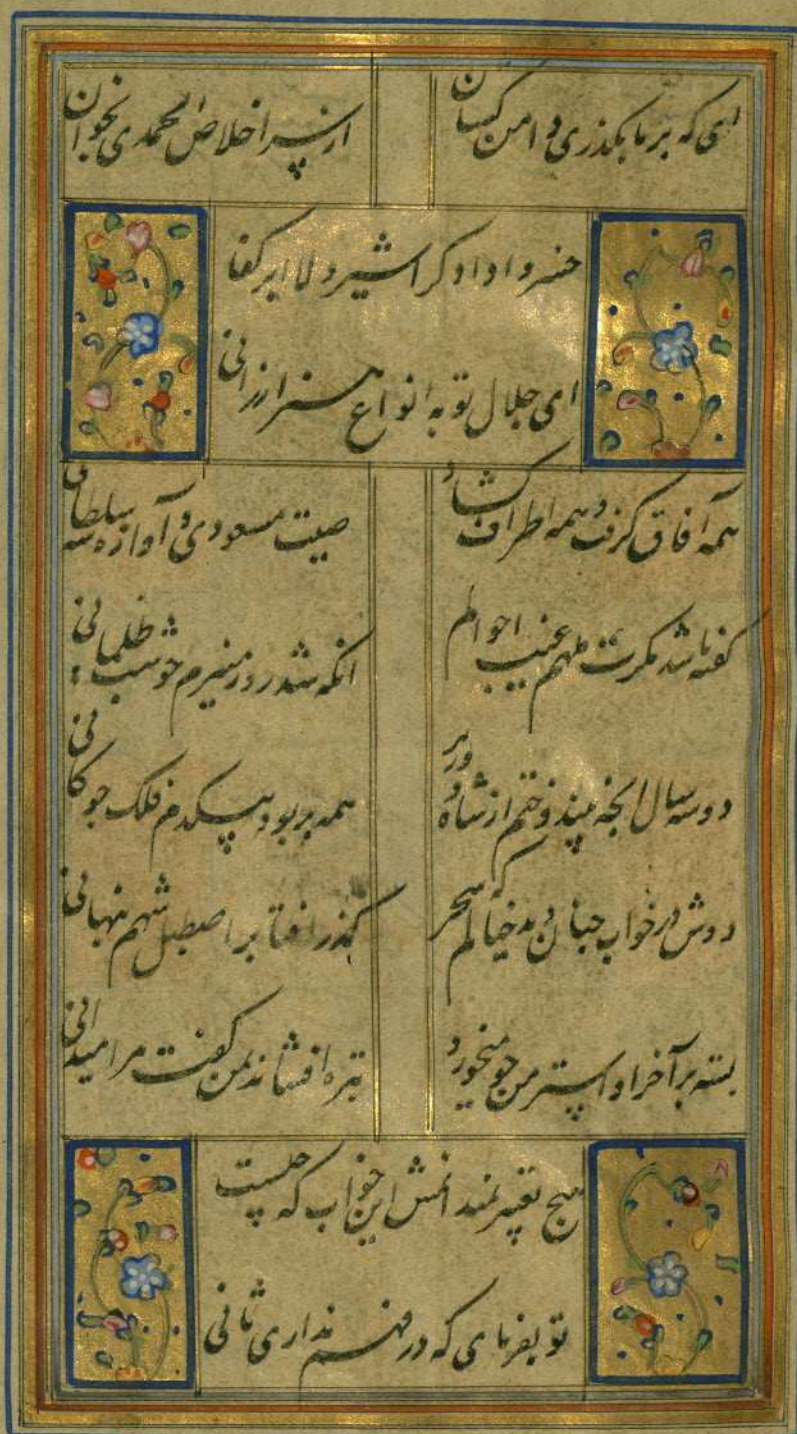 ای که بر ما بگذری دامن کشان
از سر اخلاص الحمدی بخوان
خسروا دادگرا شیردلا ابر کفا
ای جلال تو به انواع هنر ارزانی
همه آفاق گرفت و همه اطراف گشاد
صیت مسعودی و آوازه شه سلطانی
گفته باشد مگرت ملهم غیب احوالم
انکه شد روز منیرم چو شب ظلمانی
دو سه سال انچه بیندوختم از شاه و وزیر
همه بربود بیکدم فلک چوکانی
دوش در خواب چنان دید خیالم که سحر
گذر افتاد بر اصطبل شهم پنهانی
بسته بر آخر او استر من جو میخورد
تبره افشاند بمن گفت مرا میدانی
هیچ تعبیر نمیدانمش این خواب که چیست
تو بفرمای که در فهم نداری ثانی